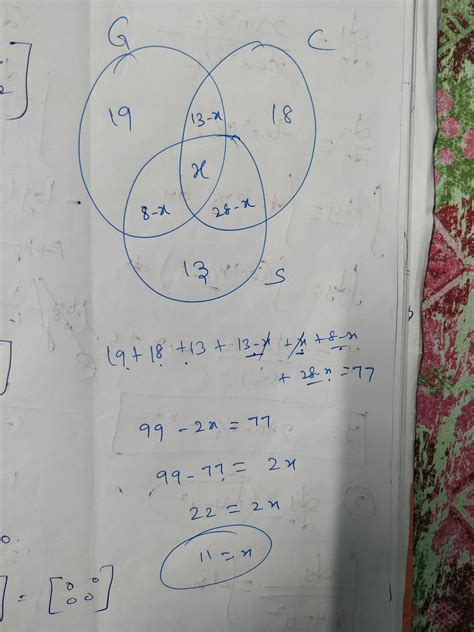 G C
19 13-x 18
x
8-x 28-x
13 S
19 + 18 + 13 + 13-x + x + 8-x
+ 28-x = 77
99 - 2x = 77
99 - 77 = 2x
22 = 2x
11 = x
= [0 0
0 0]